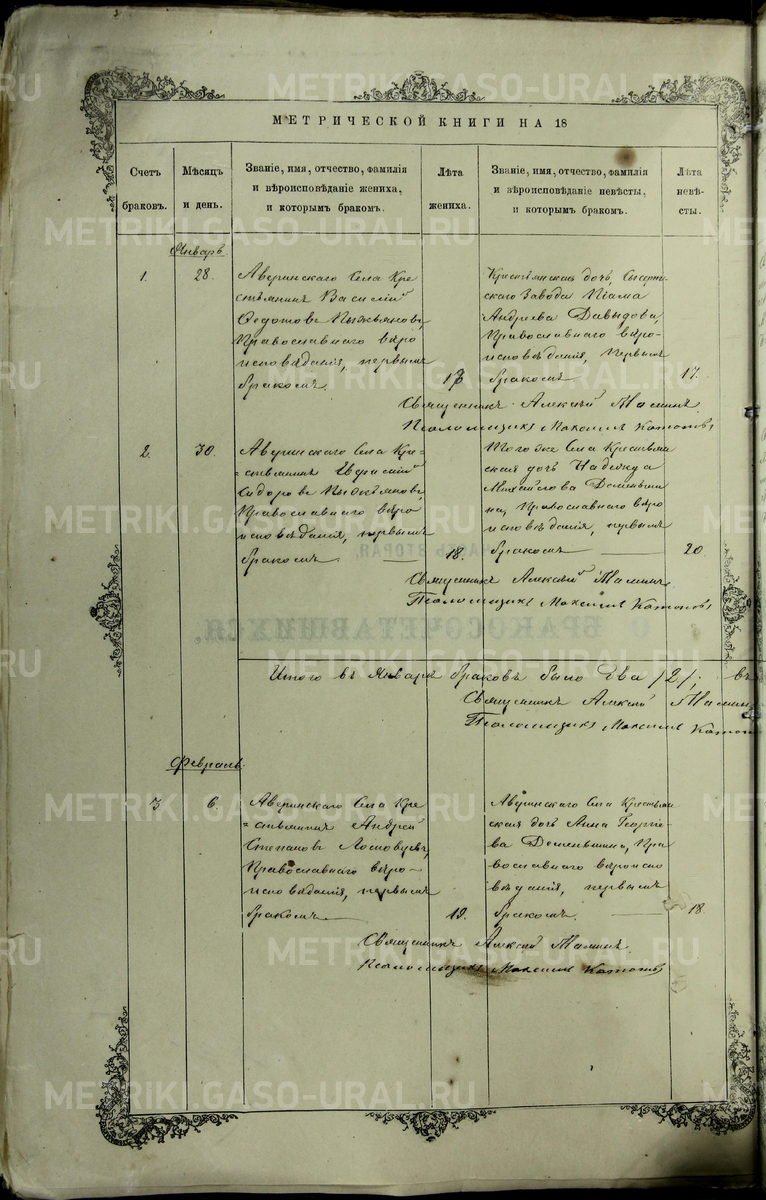 МЕТРИЧЕСКОЙ КНИГИ НА 18
Счетъ браковъ.
Мѣсяцъ и день.
Званіе, имя, отчество, фамилія и вѣроисповѣданіе жениха, и которымъ бракомъ.
Лѣта жениха.
Званіе, имя, отчество, фамилія и вѣроисповѣданіе невѣсты, и которымъ бракомъ.
Лѣта невѣсты.
Январь.
1.
28.
Аверинскаго Села Кре
стьянинъ Василій
Ѳедотовъ
Православнаго вѣро
исповѣданія, первымъ
бракомъ.
Крестьянская дочь, Сысерт
скаго Завода
Андреева Давыдова,
Православнаго вѣро-
исповѣданія, первымъ
бракомъ.
17.
Священникъ Алексій Маминъ
Псаломщикъ Максимъ
2.
30.
Аверинскаго Села Кре-
=стьянинъ
Сидоровъ
Православнаго вѣро
исповѣданія, первымъ
бракомъ
18.
Того же Села Крестьян
ская дочь Надежда
Михайлова Деменьши
на, Православнаго вѣро
исповѣданія, первымъ
бракомъ
20.
Священникъ Алексій Маминъ
Псаломщикъ Максимъ
Итого въ Январѣ браковъ было два /2/; въ
Священникъ Алексій Мамин
Псаломщикъ Максимъ
Февраль.
3
6.
Аверинскаго Села Кре
=стьянинъ Андрей
Степановъ
Православнаго вѣро-
исповѣданія, первымъ
бракомъ
19.
Аверинскаго Села Крестьян
ская дочь Анна Георгіе
ва Деменьшина, Пра
вославнаго вѣроиспо
вѣданія, первымъ
бракомъ.
18.
Священникъ Алексій Маминъ
Псаломщикъ Максимъ
METRIKI.GASO-URAL.RU